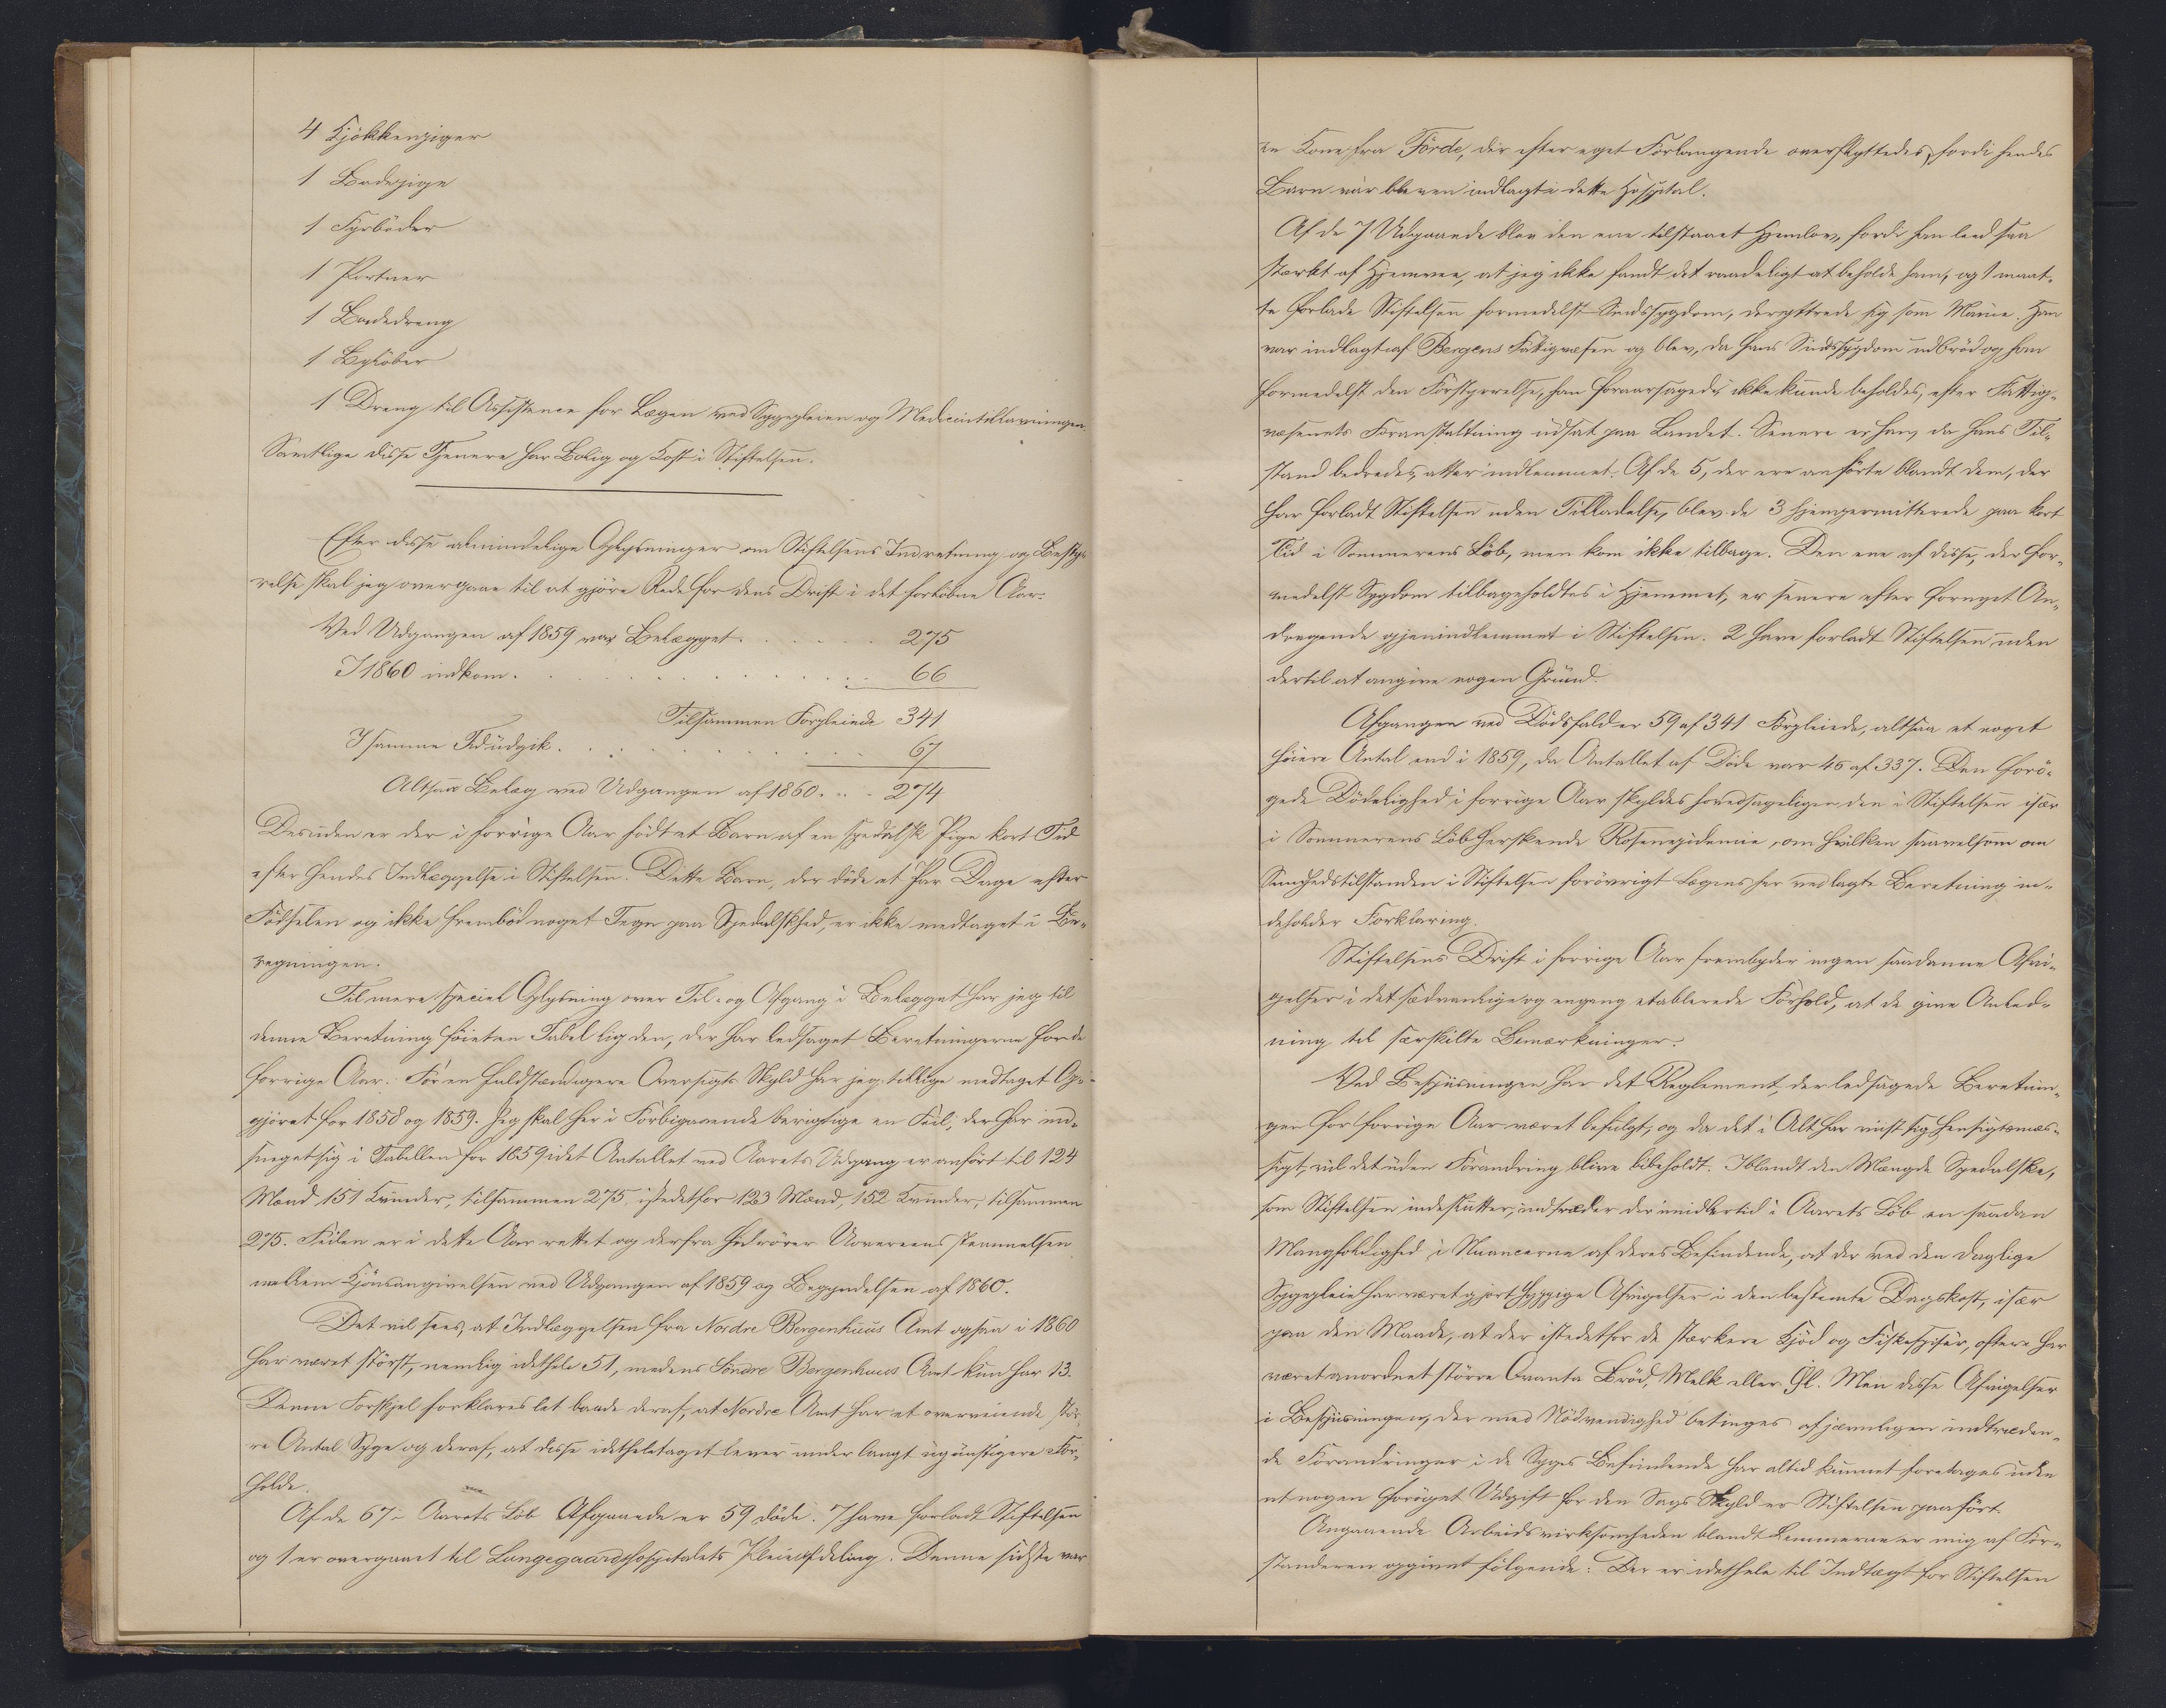 4 Kjökkenpiger
1 Badepige
1 Fyrböder
1 Portner
1 Badedreng
1 Bylöber
1 Dreng til Assistence for Lægen ved Sygepleien og Medicintillavningen.
Samtlige disse Tjenere har Bolig og Kost i Stiftelsen.
Efter disse almindelige Oplysninger om Stiftelsens Indretning og Besty-
relse skal jeg overgaae til at gjöre Rede for dens Drift i det forlöbne Aar.
Ved Udgangen af 1859 var Belægget . . . . . 275
I 1860 indkom . . . . . . . . . . 66
Tilsammen Forpleiede 341
I samme Tid udgik . . . . . . . . . 67
Altsaa Belæg ved Udgangen af 1860 . . . 274
Desuden er der i forrige Aar födt et Barn af en spedalsk Pige kort Tid
efter hendes Indlæggelse i Stiftelsen. Dette Barn, der döde et Par Dage efter
Födselen og ikke frembód noget Tegn paa Spedalskhed, er ikke medtaget i Be-
regningen.
Til mere speciel Oplysning over Til- og Afgang i Belægget har jeg til
denne Beretning föiet en Tabel lig den, der har ledsaget Beretningerne for de
forrige Aar. For en fuldstændigere Oversigts Skyld har jeg tillige medtaget Op-
gjöret for 1858 og 1859. Jeg skal her i Forbigaaende berigtige en Feil, der har ind-
sneget sig i Tabellen for 1859 idet Antallet ved Aarets Udgang er anfört til 124
Mænd 151 Kvinder, tilsammen 275, istedetfor 123 Mænd, 152 Kvinder, tilsammen
275. Feilen er i dette Aar rettet og derfra hidrörer Uovereensstemmelsen
mellem Kjönsangivelsen ved Udgangen af 1859 og Begyndelsen af 1860.
Det vil sees, at Indlæggelsen fra Nordre Bergenhuus Amt ogsaa i 1860
har været störst, nemlig idethele 51, medens Söndre Bergenhuus Amt kun har 13.
Denne Forskjel forklares let baade deraf, at Nordre Amt har et overveiende stör-
re Antal Syge og deraf, at disse idetheletaget lever under langt ugunstigere For-
holde.
Af de 67 i Aarets Löb Afgaaede er 59 döde. 7 have forladt Stiftelsen
og 1 er overgaaet til Lungegaardshospitalets Pleieafdeling. Denne sidste var
en Kone fra Förde, der efter eget Forlangende overflyttedes, fordi hendes
Barn var bleven indlagt i dette Hospital.
Af de 7 Udgaaede blev den ene tilstaaet Hjemlov, fordi han leed saa
stærkt af Hjemvee, at jeg ikke fandt det raadeligt at beholde ham, og 1 maat-
te forlade Stiftelsen formedelst Sindssygdom, der yttrede sig som Manie. Han
var indlagt af Bergens Fattigvæsen og blev, da hans Sindssygdom udbröd og han
formedelst den Forstyrrelse, han foraarsagede, ikke kunde beholdes, efter Fattig-
væsenets Foranstaltning udsat paa Landet. Senere er han, da hans Til-
stand bedredes, atter indlemmet. Af de 5, der ere anförte blandt dem, der
har forladt Stiftelsen uden Tilladelse, blev de 3 hjempermitterede paa kort
Tid i Sommerens Löb, men kom ikke tilbage. Den ene af disse, der for-
medelst Sygdom tilbageholdtes i Hjemmet, er senere efter fornyet An-
dragende gjenindlemmet i Stiftelsen. 2 have forladt Stiftelsen uden
dertil at angive nogen Grund.
Afgangen ved Dödsfald er 59 af 341 Forpleiede, altsaa et noget
höiere Antal end i 1859, da Antallet af Döde var 45 af 337. Den forö-
gede Dödelighed i forrige Aar skyldes hovedsageligen den i Stiftelsen især
i Sommerens Löb herskende Rosenepidemie, om hvilken saavelsom om
Sundhedstilstanden i Stiftelsen forövrigt Lægens her vedlagte Beretning in-
deholder Forklaring.
Stiftelsens Drift i forrige Aar frembyder ingen saadanne Afvi-
gelser i det sædvanlige og engang etablerede Forhold, at de give Anled-
ning til særskilte Bemærkninger.
Ved Bespiisningen har det Reglement, der ledsagede Beretnin-
gen for forrige Aar været befulgt, og da det i Alt har viist sig hensigtsmæs-
sigt, vil det uden Forandring blive bibeholdt. Iblandt den Mængde Spedalske,
som Stiftelsen indeslutter, indtræder der imidlertid i Aarets Löb en saadan
Mangfoldighed i Nuancerne af deres Befindende, at der ved den daglige
Sygepleie har været gjort hyppige Afvigelser i den bestemte Dagskost, især
paa den Maade, at der istedetfor de stærkere Kjöd og Fiskespiser, oftere har
været anordnet större Qvanta Bröd, Melk eller Öl. Men disse Afvigelser
i Bespiisningen, der med Nödvendighed betinges af jævnligen indtræden-
de Forandringer i de Syges Befindende har altid kunnet foretages uden
at nogen foröget Udgift for den Sags Skyld er Stiftelsen paafört.
Angaaende Arbeidsvirksomheden blandt Lemmerne er mig af For-
standeren opgivet fölgende: Der er idethele til Indtægt for Stiftelsen